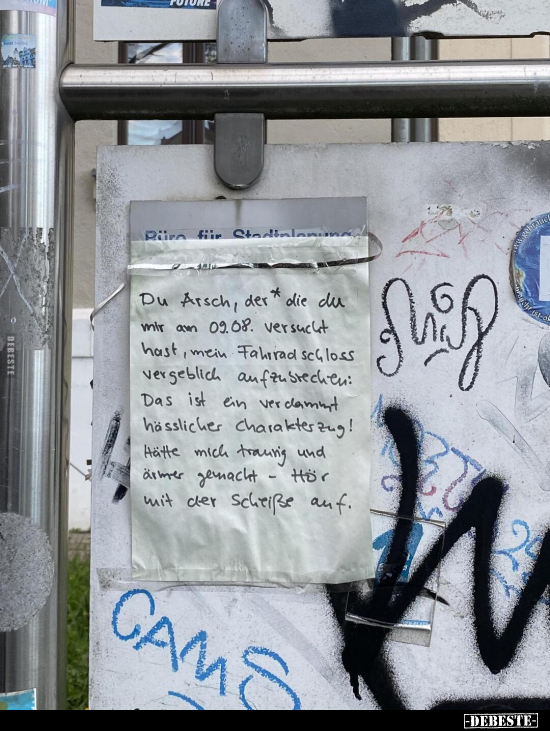 FUTURE
Büro für Stadtplanung
Du Arsch, der* die du
mir am 09.08. versucht
hast, mein Fahrradschloss
vergeblich aufzubrechen:
Das ist ein verdammt
hässlicher Charakterzug!
Hätte mich traurig und
ärmer gemacht – Hör
mit der Scheiße auf.
CAMS
DEBESTE
-DEBESTE-